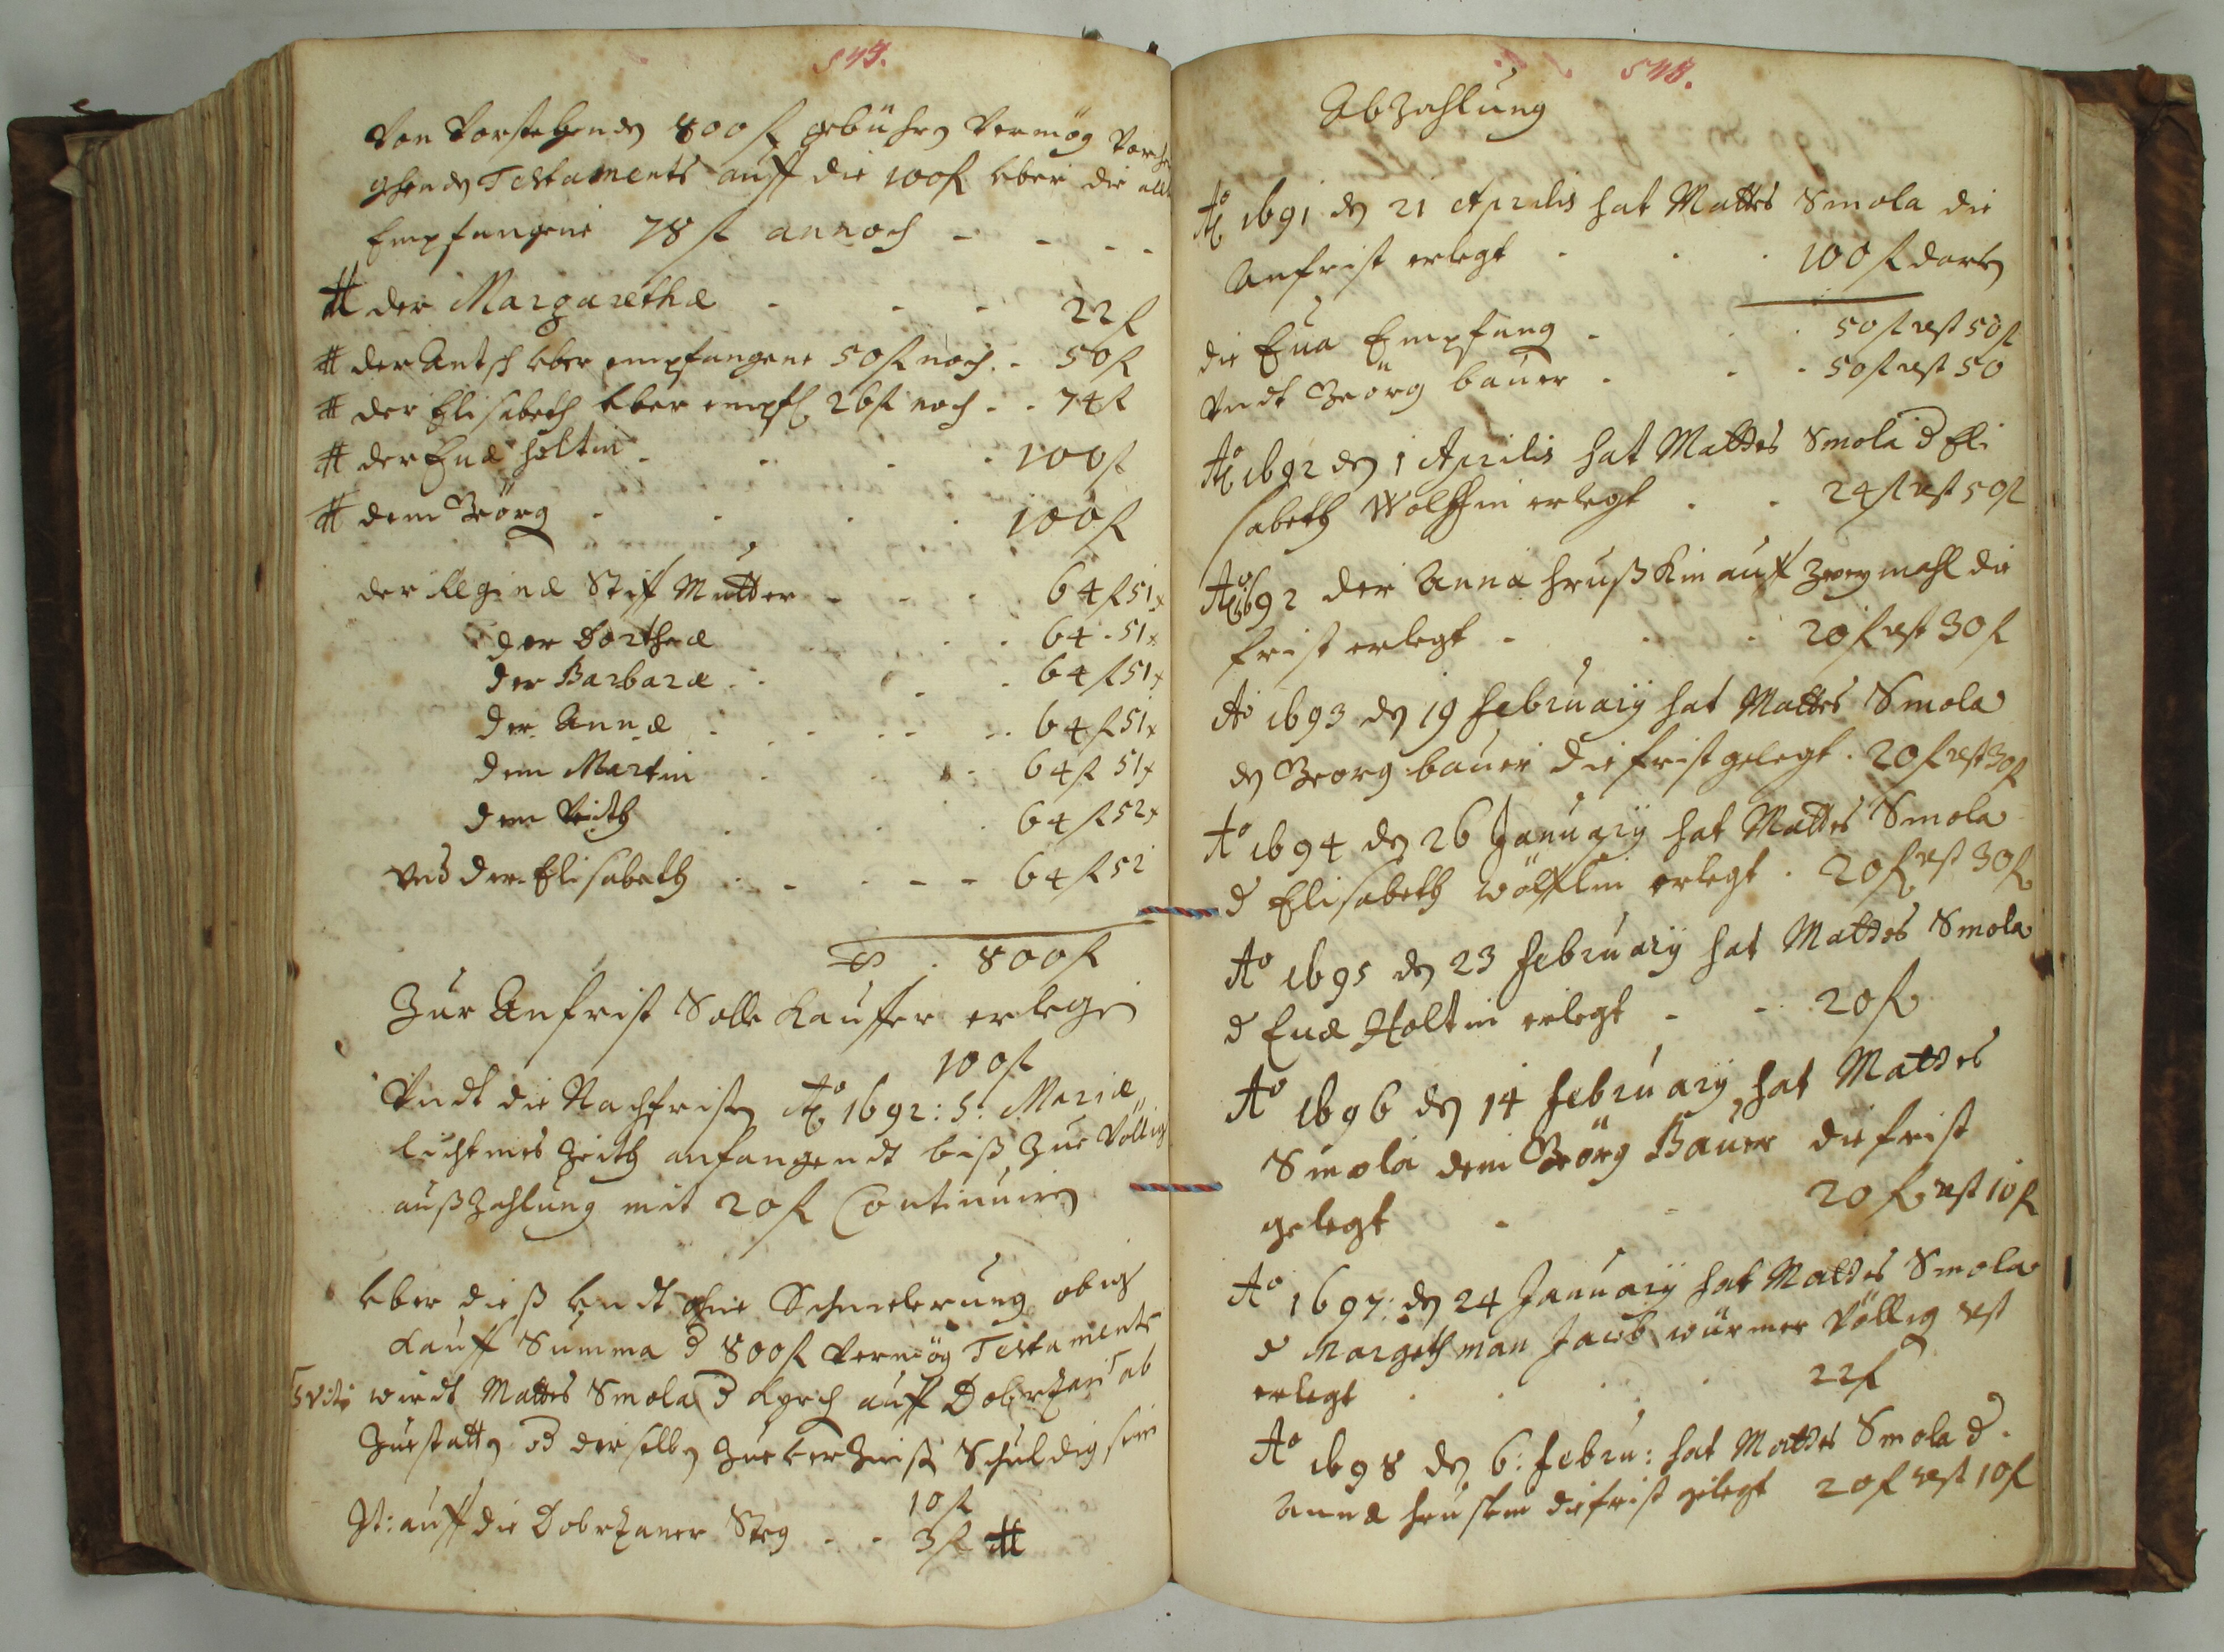 Von Vorstehenden 800 f gebühren Vermög Vorher
gehenden Testaments auff die 100 f uber die all
Empfangene 78 f annoch - - - -
# der Margarethæ - - - 22 f
# der Antsch uber empfangene 50 f noch - 50 f
# der Elisabeth uber empf 26 f noch - - 74 f
# der Euæ holtin - - - - 100 f
# dem Görg - - - - 100 f
der Reginæ Stieff Mutter - - - 64 f 51 x
der Dortheæ - - - 64 - 51 x
der Barbaræ - - - 64 f 51 x
der Annæ - - - - 64 f 51 x
dem Martin - - - 64 f 51 x
dem Veith - - - 64 f 52 x
vnd der Elisabeth - - - - - 64 f 52
800 f
Zur Anfrist Solle Kauffer erlegen
100 f
Vndt die Nachfristen Ao 1692: S: Mariæ
lichtmes Zeith anfangendt biß Zur Völlig
außZahlung mit 20 f Continuiren
Uber dieß undt ohne Schmelerung obig
Kauff Summa d 800 f Vermög Testaments
wirdt Mattes Smola d Kyrch auff Dobrzan ab
Zuestatten od derselben ZueverZinsen Schuldig sein
10 f
It: auff die Dobrzaner Steg - - 3 f #
548.
AbZahlung
Ao 1691 den 21 Aprilis hat Mattes Smola die
Anfrist erlegt - - - 100 f darv
die Eua Empfang - - - 50 f rest 50 f
Vndt Geörg bauer - - - 50 f rest 50
Ao 1692 den 1 Aprilis hat Mattes Smola d Eli
sabeth Wolffin erlegt - - 24 f rest 50 f
Ao 1692 der Annæ hrußkin auff Zweymahl die
frist erlegt - - - 20 f rest 30 f
Ao 1693 den 19 February hat Mattes Smola
den Georg bauer die frist gelegt . 20 f rest 30 f
Ao 1694 den 26 January hat Mattes Smola
d Elisabeth wölfflin erlegt . 20 f rest 30 f
Ao 1695 den 23 february hat Mattes Smola
d Euæ Holtin erlegt - - 20 f
Ao 1696 den 14 february hat Mattes
Smola dem Geörg Bauer die frist
gelegt - - 20 f rest 10 f
Ao 1697: den 24 January hat Mattes Smola
d Margeth man Jacob würmer Völlig rest
erlegt . . . . 22 f
Ao 1698 den 6: Febru: hat Mattes Smola d
Annæ hruskin die frist gelegt 20 f rest 10 f